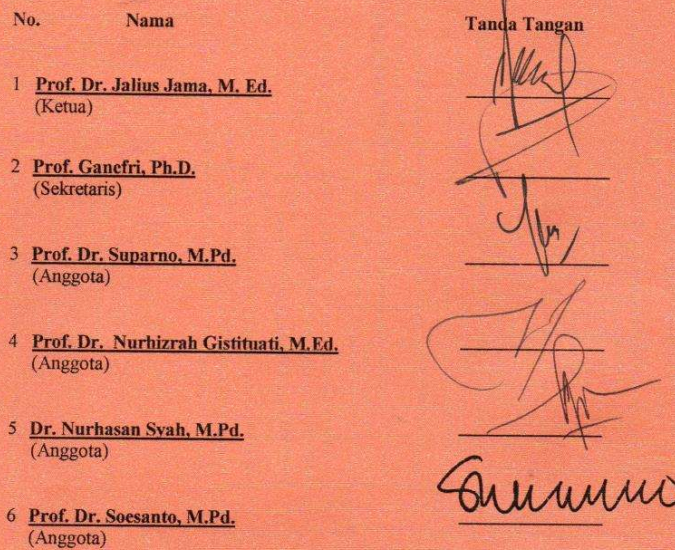 No. Nama Tanda Tangan
1 Prof. Dr. Jalius Jama, M. Ed.
(Ketua)
2 Prof. Ganefri, Ph.D.
(Sekretaris)
3 Prof. Dr. Suparno, M.Pd.
(Anggota)
4 Prof. Dr. Nurhizrah Gistituati, M.Ed.
(Anggota)
5 Dr. Nurhasan Syah, M.Pd.
(Anggota)
6 Prof. Dr. Soesanto, M.Pd.
(Anggota)